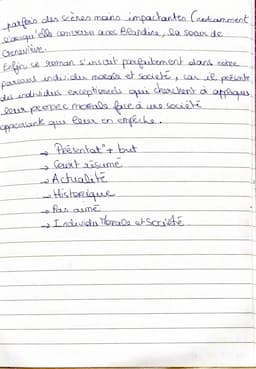 parfois des scènes moins impactantes (notamment
lorsqu'elle converse avec Blandine, la sœur de
Geneviève.
Enfin ce roman s'inscrit parfaitement dans notre
parcours individu morale et société, car il présente
des individus exceptionnels qui cherchent à appliquer
leur propre morale face à une société
oppressante qui leur en empêche.
→ Présentat° + but
→ Court résumé
→ Actualité
→ Historique
→ Pas aimé
→ Individu Morale et Société